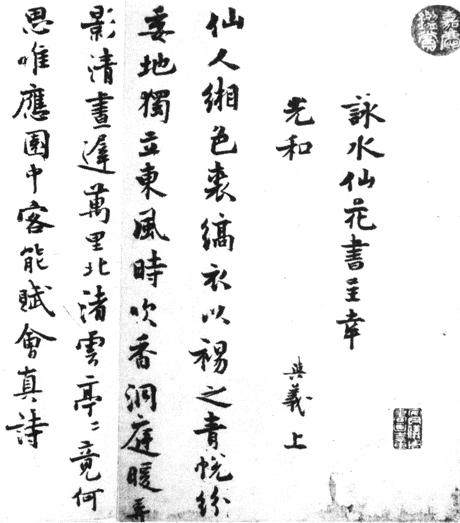 詠水仙花書呈幸
光和
與義上
仙人緗色裘縞衣以裼之青帨紛
委地獨立東風時吹香洞庭暖弄
影清晝遲萬里北渚雲亭〻竟何
思唯應園中客能賦會真詩
嘉慶鑑賞